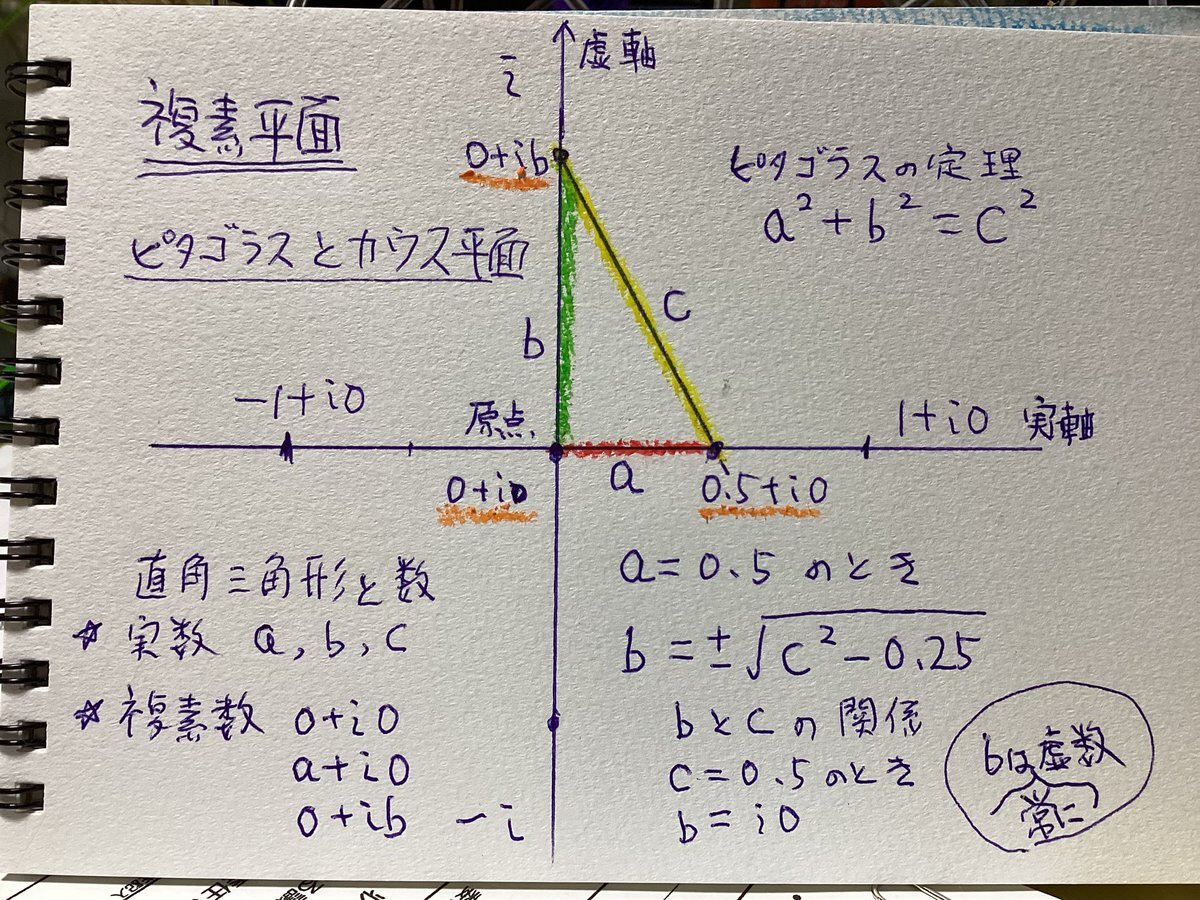 虚軸
i
複素平面
0+ib
ピタゴラスの定理
a²+b²=c²
ピタゴラスとカウス平面
c
b
-1+i0
原点
1+i0 実軸
0+i0
a
0.5+i0
直角三角形と数
☆実数 a,b,c
☆複素数 0+i0
a+i0
0+ib
-i
a=0.5のとき
b=±√c²-0.25
bとcの関係
c=0.5のとき
b=i0
bは虚数
常に